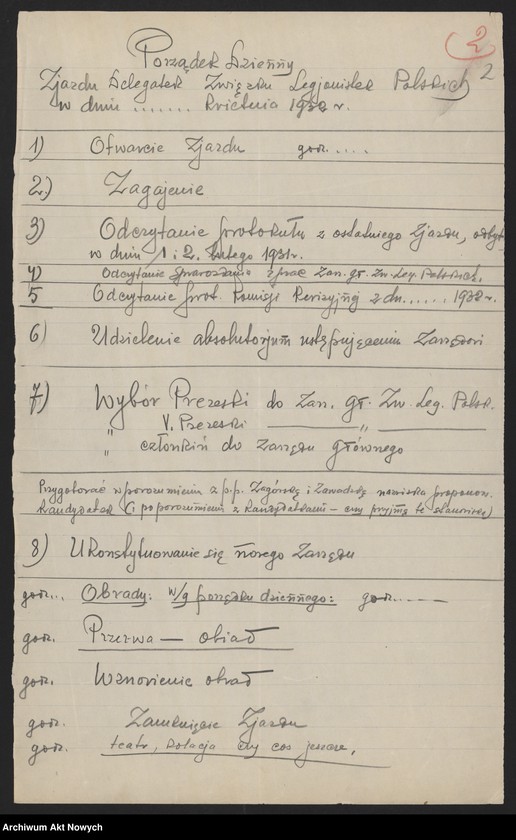 2
2
Porządek Dzienny
Zjazdu Delegatek Związku Legjonistek Polskich
w dniu ....... kwietnia 1932 r.
1) Otwarcie Zjazdu godz. ....
2.) Zagajenie
3) Odczytanie protokułu z ostatniego Zjazdu, odbyt.
w dniu 1 i 2. lutego 1931 r.
4) Odczytanie sprawozdania z prac Zarz. gł. Zw. Leg. Polskich.
5 Odczytanie prot. Komisji Rewizyjnej z dn. ...... 1932 r.
6) Udzielenie absolutorjum ustępującemu Zarządowi
7) Wybór Prezeski do Zarz. gł. Zw. Leg. Polsk.
" V. Prezeski "
" członkiń do Zarządu głównego
Przygotować w porozumieniu z p.p. Zagórską i Zawadzką nazwiska proponow.
kandydatek (i po porozumieniu z kandydatkami – czy przyjmą te stanowiska)
8) Ukonstytuowanie się nowego Zarządu
godz... Obrady: w/g porządku dziennego: godz. .....
godz. Przerwa — obiad
godz. Wznowienie obrad
godz. Zamknięcie Zjazdu
godz. teatr, kolacja czy coś jeszcze.
Archiwum Akt Nowych